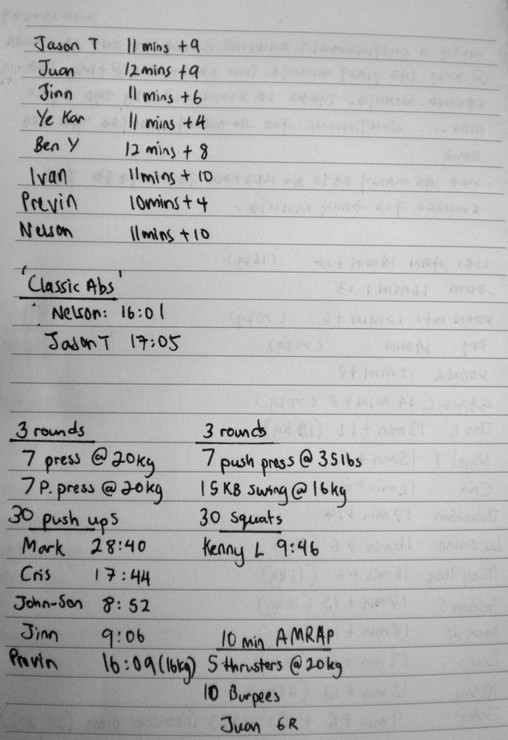 Jason T 11 mins +9
Juan 12mins +9
Jinn 11 mins +6
Ye Kar 11 mins +4
Ben Y 12 mins + 8
Ivan 11mins + 10
Previn 10mins+4
Nelson 11mins +10
'Classic Abs'
Nelson: 16:01
Jason T 17:05
3 rounds
7 press @ 20kg
7 P. press @ 20kg
30 push ups
Mark 28:40
Cris 17:44
John-Son 8:52
Jinn 9:06
Previn 16:09 (16kg)
3 rounds
7 push press @ 35lbs
15 KB swing @ 16kg
30 squats
Kenny L 9:46
10 min AMRAP
5 thrusters @ 20kg
10 Burpees
Juan 6R